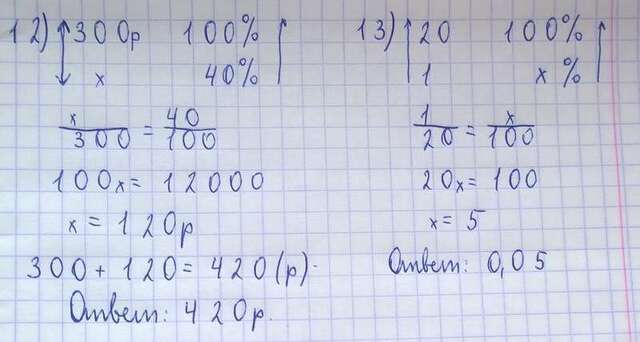 12) 300р 100%
x 40%
x/300 = 40/100
100x = 12000
x = 120р
300 + 120 = 420 (р).
Ответ: 420р.
13) 20 100%
1 x %
1/20 = x/100
20x = 100
x = 5
Ответ: 0,05